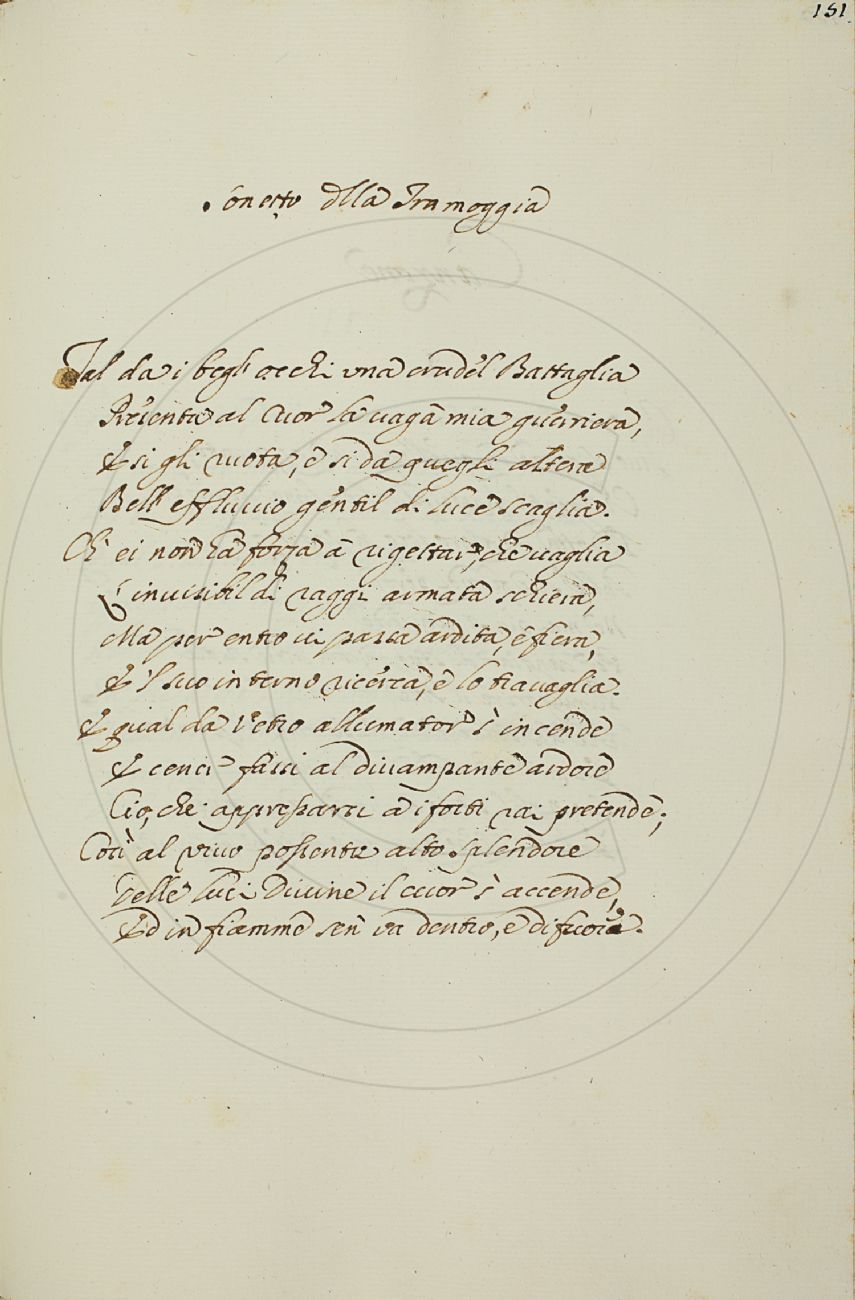 151
Sonetto della Tramoggia
Tal da i begl' occhi una crudel Battaglia
Presenta al Cuor la vaga mia guerriera,
E si gli ruota, e si da quegli altera
Bell' effluvio gentil di luce scaglia.
Ch' ei non ha forza a rigettar, che vaglia
L' invisibil di raggi armata schiera,
Ma per entro vi passa ardita, e fiera,
E 'l suo interno ricerca, e lo travaglia.
E qual da Vetro allumator s' incende
E cener fassi al divampante ardore
Ciò, che appressarsi a i forti rai pretende;
Così al vivo possente alto splendore
Delle luci Divine il cuor s' accende,
Ed in fiamme sen va dentro, e di fuore.